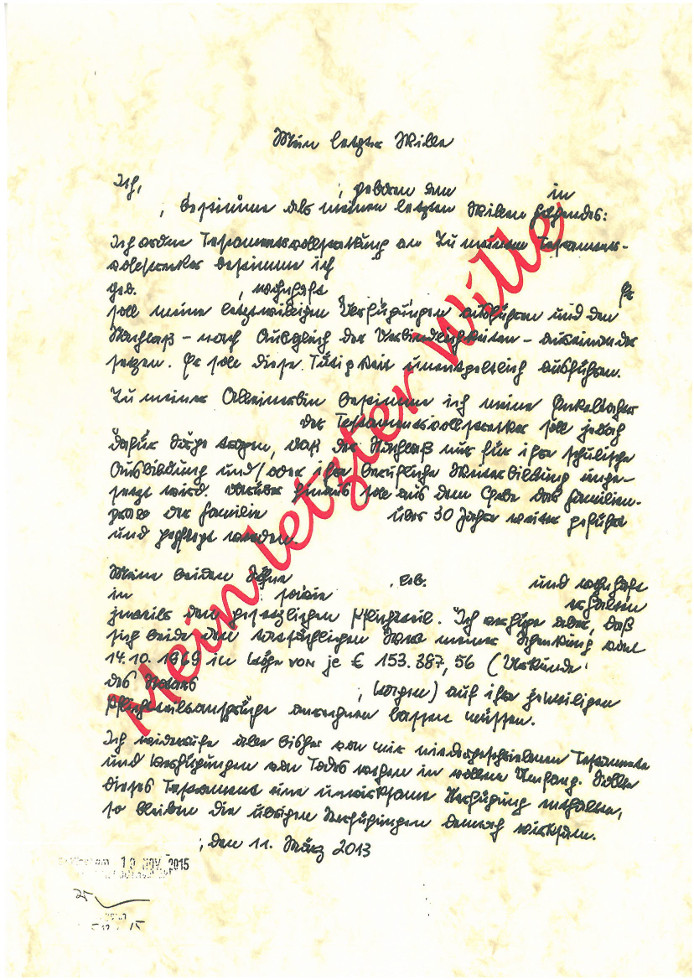 Mein letzter Wille
Ich, , geboren am in
, bestimme als meinen letzten Willen folgendes:
Ich ordne Testamentsvollstreckung an. Zu meinem Testaments-
vollstrecker bestimme ich
geb. , wohnhaft Er
soll meine letztwilligen Verfügungen ausführen und den
Nachlaß - nach Ausgleich der Verbindlichkeiten - auseinander
setzen. Er soll diese Tätigkeit unentgeltlich ausführen.
Zu meiner Alleinerbin bestimme ich meine Enkeltochter
der Testamentsvollstrecker soll jedoch
dafür Sorge tragen, daß der Nachlaß nur für ihre schulische
Ausbildung und/oder ihre berufliche Weiterbildung einge-
setzt wird. Darüber hinaus soll aus dem Gelde das Familien-
grab der Familie über 30 Jahre weiter geführt
und gepflegt werden.
Meine beiden Söhne , geb. und wohnhaft
in sowie erhalten
jeweils den gesetzlichen Pflichtteil. Ich verfüge aber, daß
sich beide den ursprünglichen Wert meiner Schenkung vom
14.10.1969 in Höhe von je € 153.387,56 (Urkunde
des Notars , ) auf ihre jeweiligen
Pflichtteilsansprüche anrechnen lassen müssen.
Ich widerrufe alle bisher von mir niedergeschriebenen Testamente
und Verfügungen von Todes wegen in vollem Umfang. Sollte
dieses Testament eine unwirksame Verfügung enthalten,
so bleiben die übrigen Verfügungen dennoch wirksam.
, den 11. März 2013
Mein letzter Wille
NOV. 2015